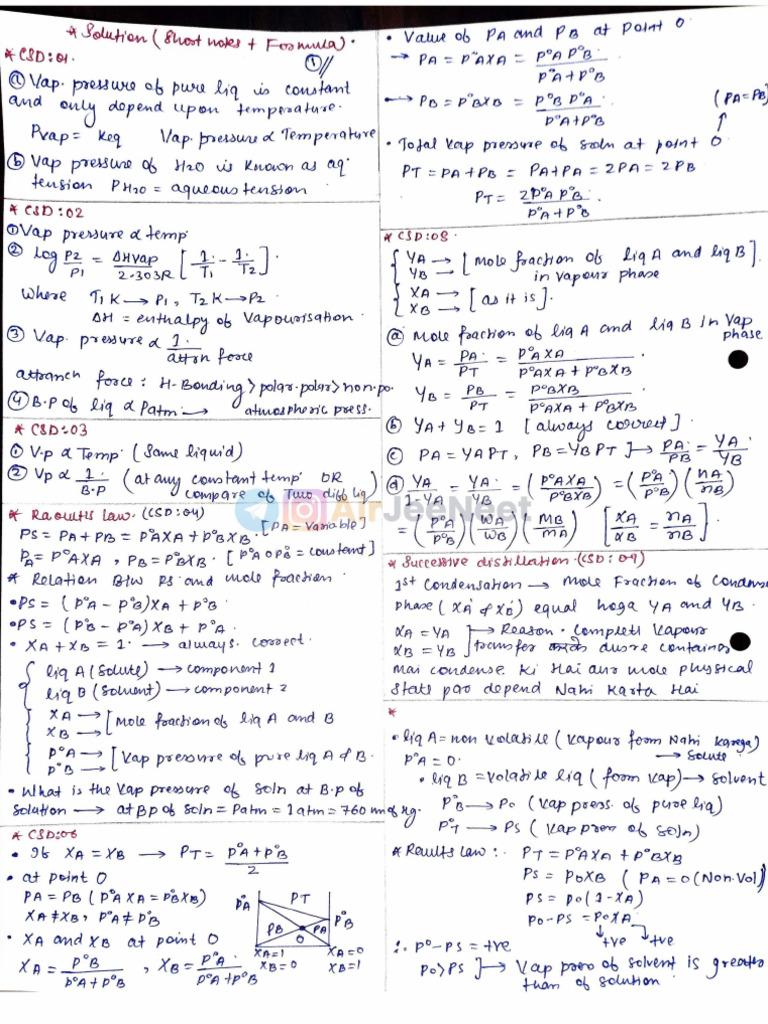 * Solution (Short notes + Formula).
①//
* CSD:01.
ⓐ Vap. pressure of pure liq is constant
and only depend upon temperature.
Pvap = Keq   Vap. pressure ∝ Temperature
ⓑ Vap pressure of H2O is known as aq.
tension PH2O = aqueous tension
* CSD:02
① Vap pressure ∝ temp.
② Log P2/P1 = ΔHvap/2.303R [1/T1 - 1/T2].
where T1 K → P1, T2 K → P2
ΔH = enthalpy of vapourisation.
③ Vap. pressure ∝ 1/attrn force
attranch force : H-Bonding > polar-polar > non-po.
④ B.P of liq ∝ Patm → atmospheric press.
* CSD:03
① V.p ∝ Temp. (Same liquid)
② Vp ∝ 1/B.p (at any constant temp OR
compare of Two diff liq)
* Raoults law. (CSD:04)
PS = PA + PB = P°A XA + P°B XB. [PA = Variable]
PA = P°A XA, PB = P°B XB. [P°A or P°B = constant]
* Relation Btw Ps and mole fraction.
• PS = (P°A - P°B) XA + P°B.
• PS = (P°B - P°A) XB + P°A.
• XA + XB = 1. → always correct.
liq A (Solute) → component 1
liq B (Solvent) → component 2
XA →
XB → [Mole fraction of liq A and B
P°A →
P°B → [Vap pressure of pure liq A & B.
• What is the Vap pressure of soln at B.p of
solution → at Bp of soln = Patm = 1 atm = 760 mm of Hg.
* CSD:06
• If XA = XB → PT = P°A + P°B / 2
• at point O
PA = PB (P°A XA = P°B XB)
XA ≠ XB, P°A ≠ P°B
• XA and XB at point O
XA = P°B / P°A + P°B , XB = P°A / P°A + P°B
P°A PT P°B
PB PA
O
XA=1 XA=0
XB=0 XB=1
• Value of PA and PB at point O
→ PA = P°A XA = P°A P°B / P°A + P°B
→ PB = P°B XB = P°B P°A / P°A + P°B
(PA = PB)
• Total Vap pressure of soln at point O
PT = PA + PB = PA + PA = 2PA = 2PB
PT = 2P°A P°B / P°A + P°B.
* CSD:08.
YA →
YB → [Mole fraction of liq A and liq B]
in vapour phase
XA →
XB → [as it is].
ⓐ Mole fraction of liq A and liq B in Vap
phase
YA = PA/PT = P°A XA / P°A XA + P°B XB
YB = PB/PT = P°B XB / P°A XA + P°B XB
ⓑ YA + YB = 1 [always correct].
ⓒ PA = YA PT, PB = YB PT ] → PA/PB = YA/YB
ⓓ YA/1-YA = YA/YB = (P°A XA / P°B XB) = (P°A/P°B)(nA/nB)
= (P°A/P°B)(WA/WB)(MB/MA) [XA/XB = nA/nB].
AirJeeNeet
* Successive distillation. (CSD:09)
1st Condensation → Mole Fraction of Condense
phase (XA' & XB') equal hoga YA and YB.
XA = YA
XB = YB ] → Reason. Complete Vapour
transfer करके dusre container
mai condense Ki Hai aur mole physical
state par depend Nahi Karta Hai
*
• liq A = non volatile (Vapour form Nahi Karega)
→ Solute
P°A = 0.
• liq B = Volatile liq (form Vap) → solvent
P°B → Po (Vap press. of pure liq)
P°T → PS (Vap pren of soln)
* Raults law :. PT = P°A XA + P°B XB
PS = Po XB (PA = 0 (Non.Vol)
PS = Po (1-XA)
Po - PS = Po XA.
+ve +ve
∴ P° - PS = +ve
Po > PS ] → Vap pres of solvent is greater
than of solution.